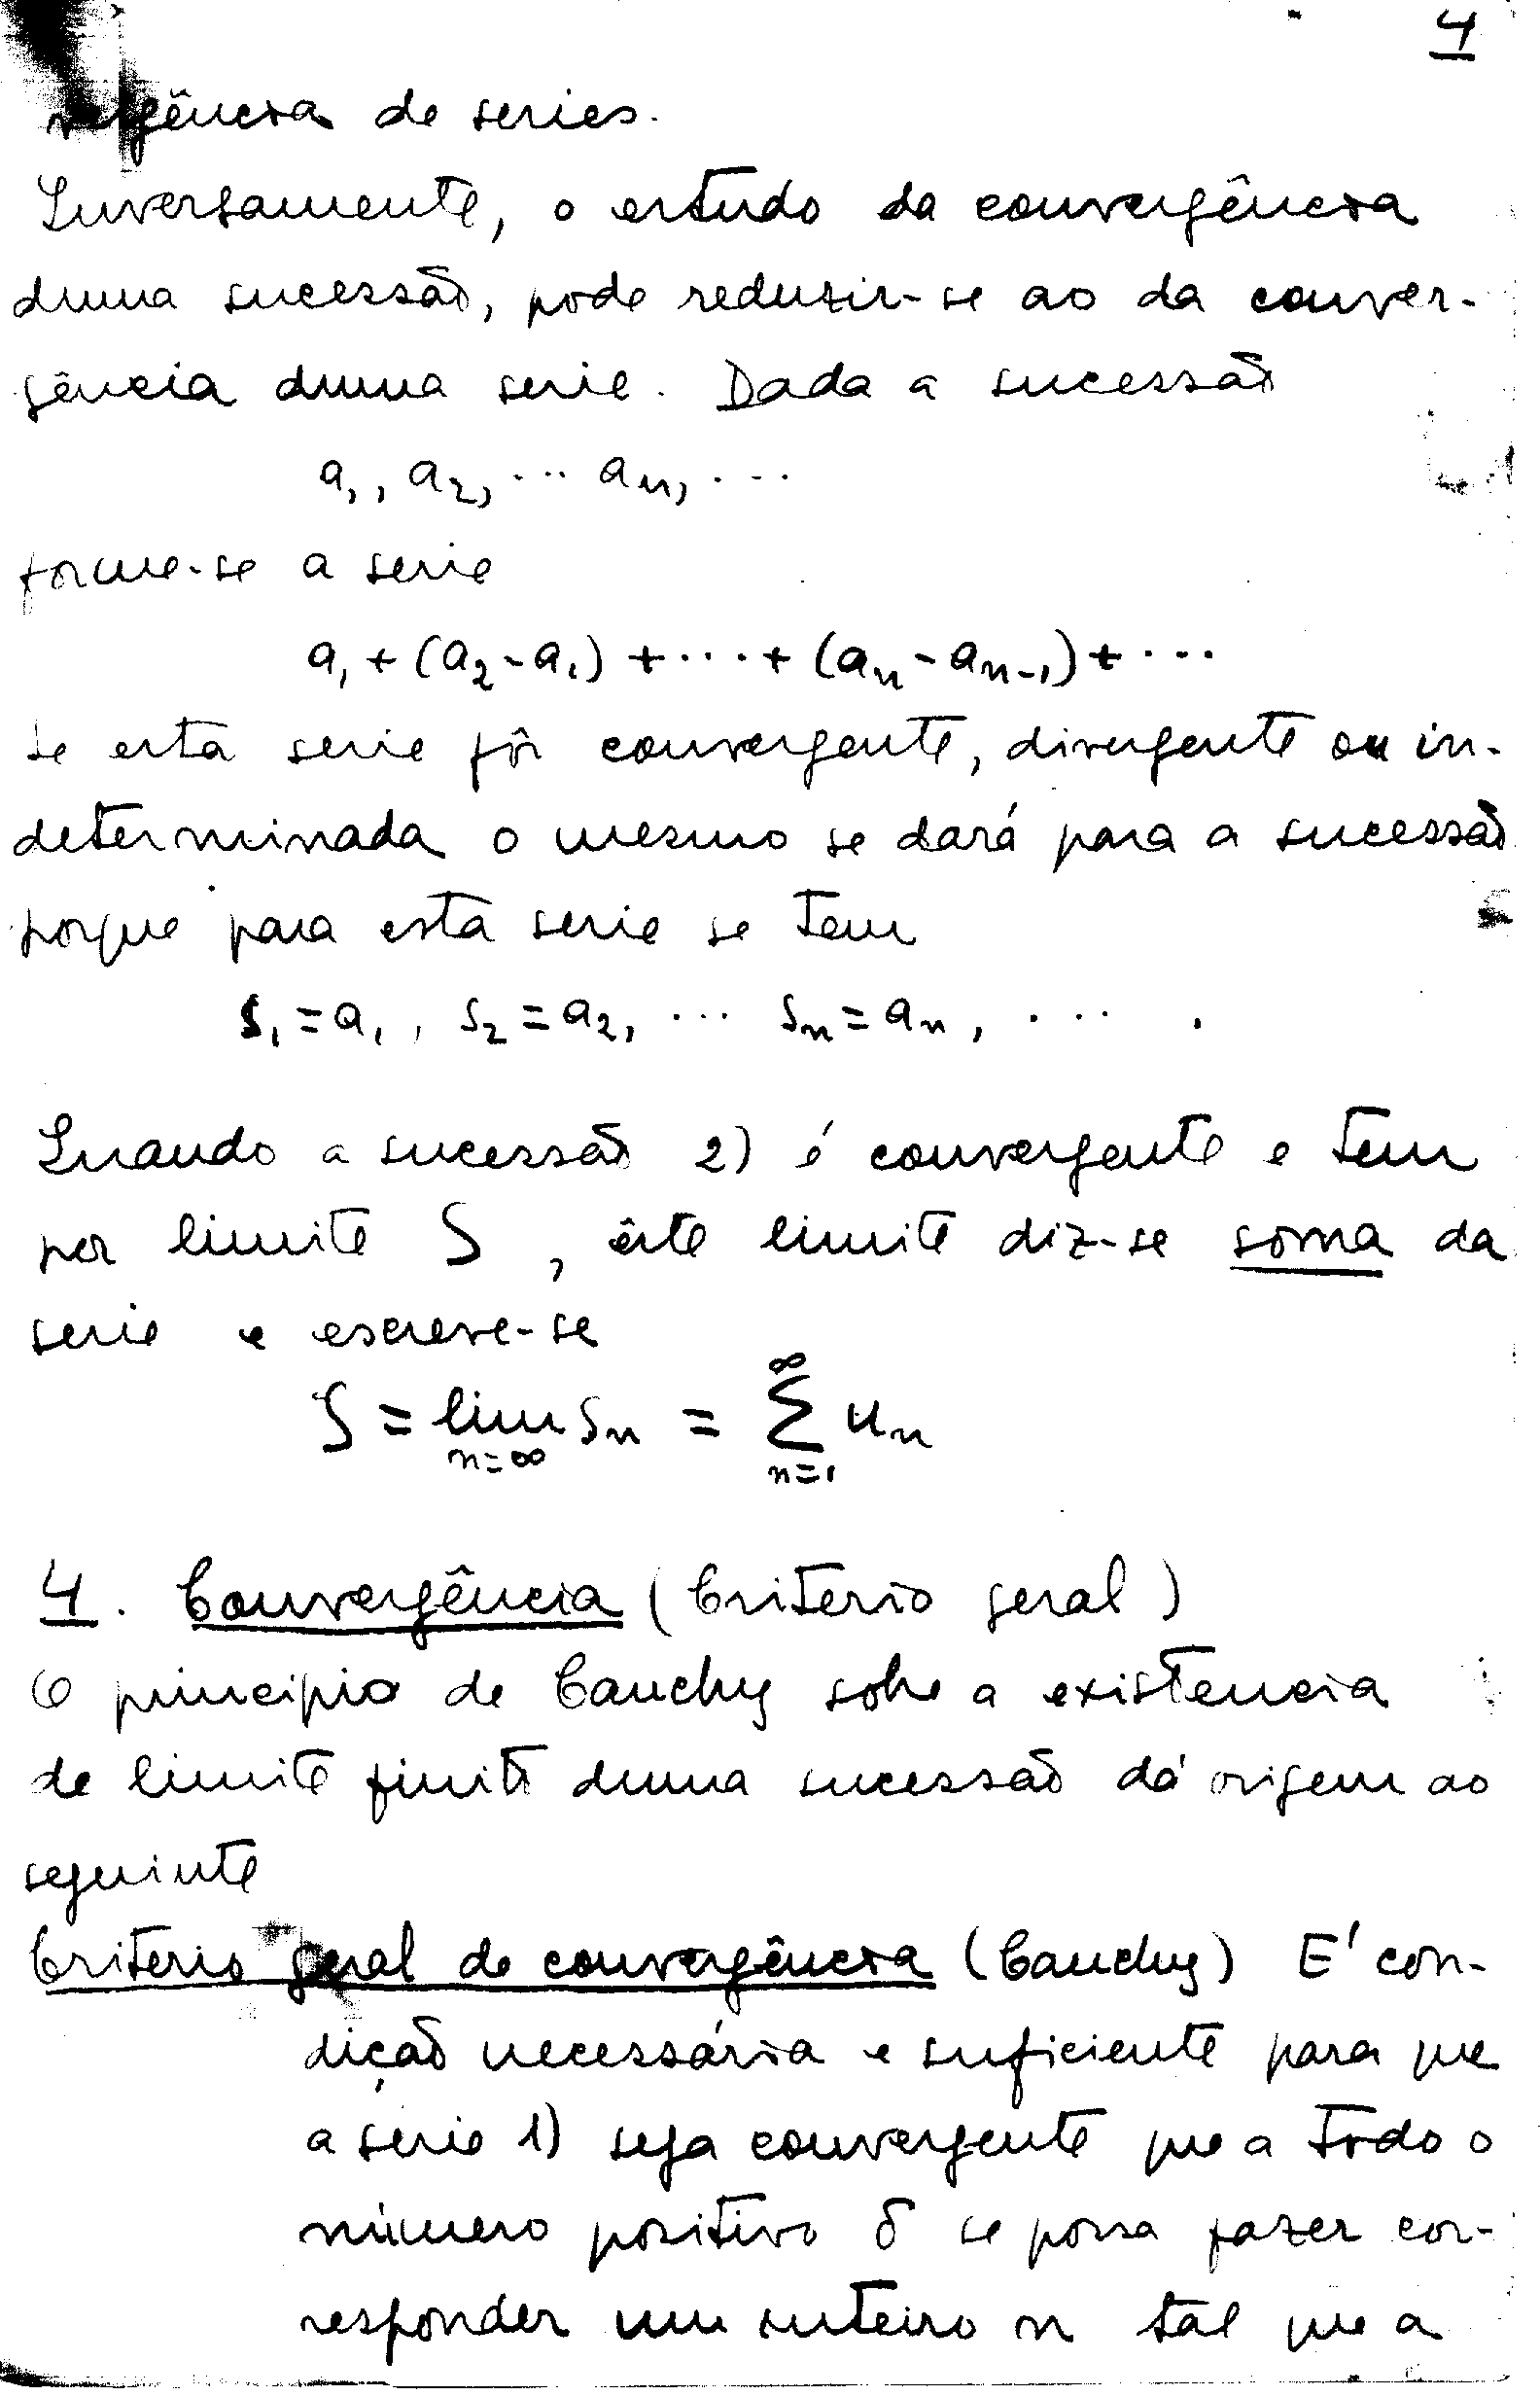 4
vergência de series.
Inversamente, o estudo da convergência
duma sucessão, pode reduzir-se ao da conver-
gência duma serie. Dada a sucessão
a₁, a₂, ... aₙ, ...
forme-se a serie
a₁ + (a₂ - a₁) + ... + (aₙ - aₙ₋₁) + ...
Se esta serie fôr convergente, divergente ou in-
determinada o mesmo se dará para a sucessão
porque para esta serie se tem
S₁ = a₁, S₂ = a₂, ... Sₙ = aₙ, ... .
Quando a sucessão 2) é convergente e tem
por limite S, êste limite diz-se soma da
serie e escreve-se
S = lim Sₙ = ∑ uₙ
n=∞ n=1 ∞
4. Convergência (Criterio geral)
O principio de Cauchy sobre a existencia
de limite finito duma sucessão dá origem ao
seguinte
Criterio geral de convergência (Cauchy) E' con-
dição necessária e suficiente para que
a serie 1) seja convergente que a todo o
número positivo δ se possa fazer cor-
responder um inteiro n tal que a